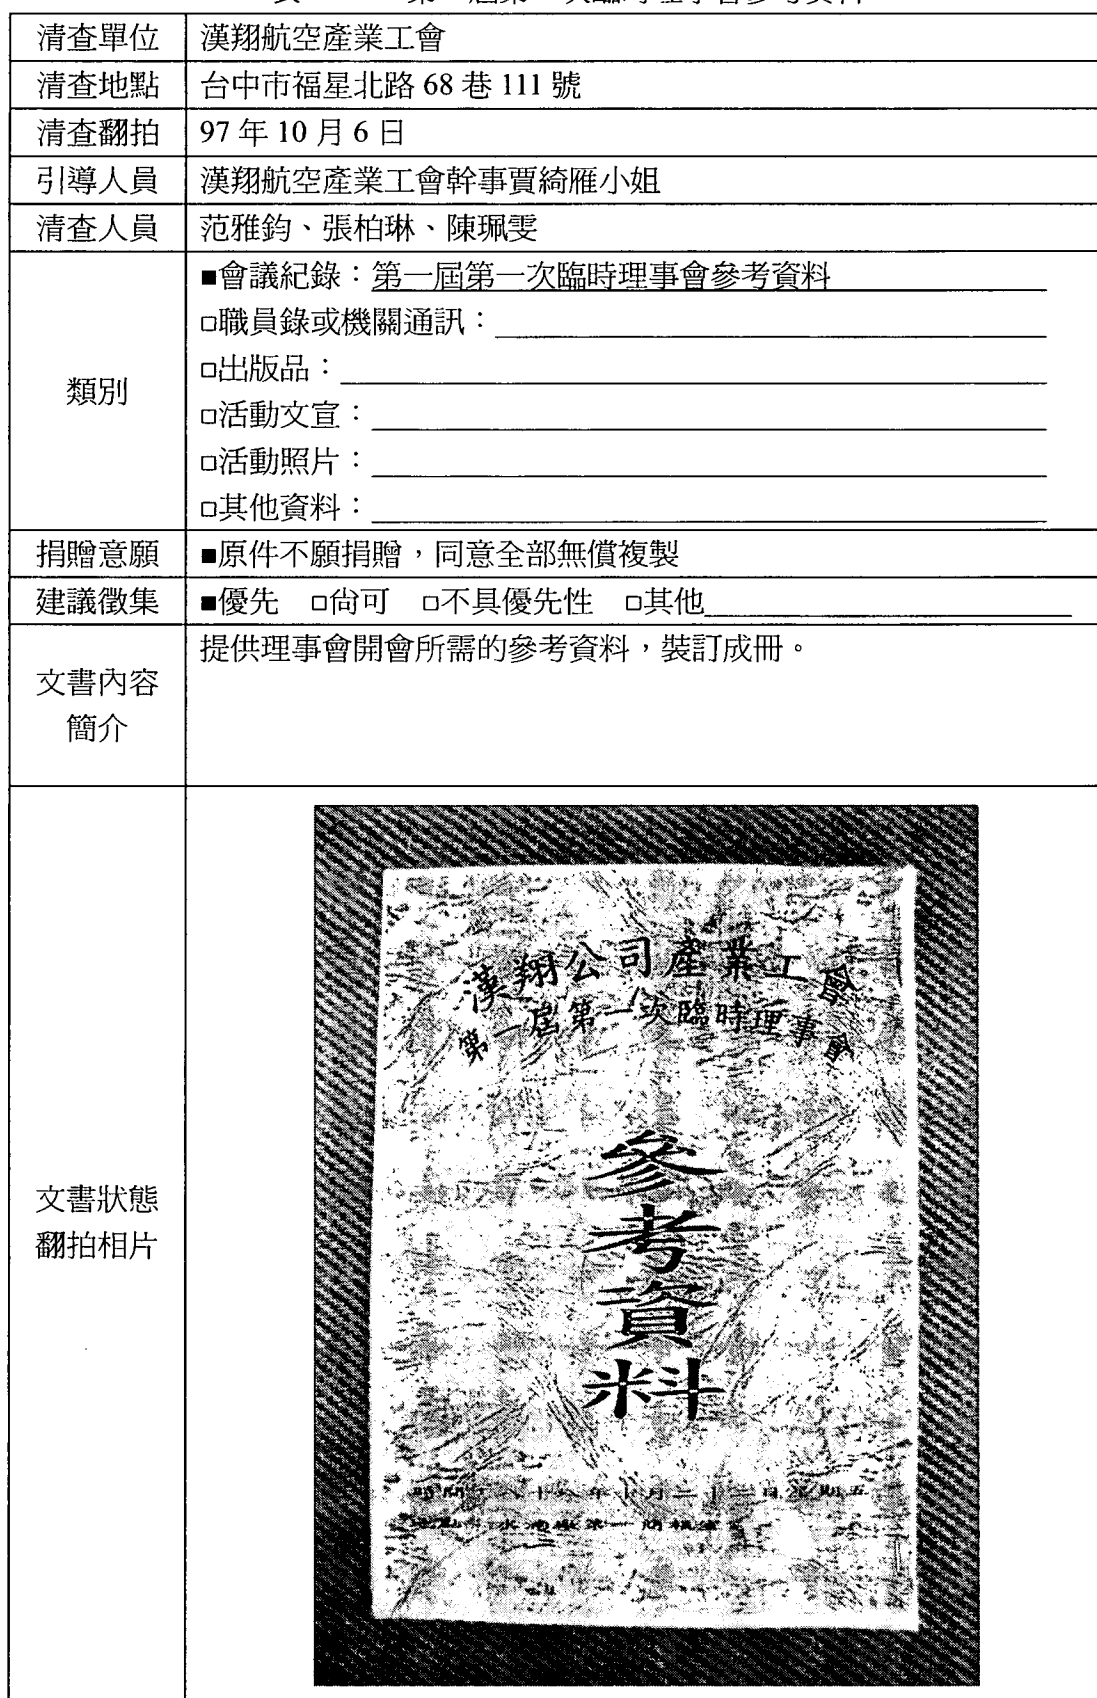 清查單位 漢翔航空產業工會
清查地點 台中市福星北路 68 巷 111 號
清查翻拍 97 年 10 月 6 日
引導人員 漢翔航空產業工會幹事賈綺雁小姐
清查人員 范雅鈞、張柏琳、陳珮雯
類別
■會議紀錄：第一屆第一次臨時理事會參考資料
□職員錄或機關通訊：
□出版品：
□活動文宣：
□活動照片：
□其他資料：
捐贈意願 ■原件不願捐贈，同意全部無償複製
建議徵集 ■優先 □尚可 □不具優先性 □其他
文書內容
簡介
提供理事會開會所需的參考資料，裝訂成冊。
文書狀態
翻拍相片
漢翔公司產業工會
第一屆第一次臨時理事會
參考資料